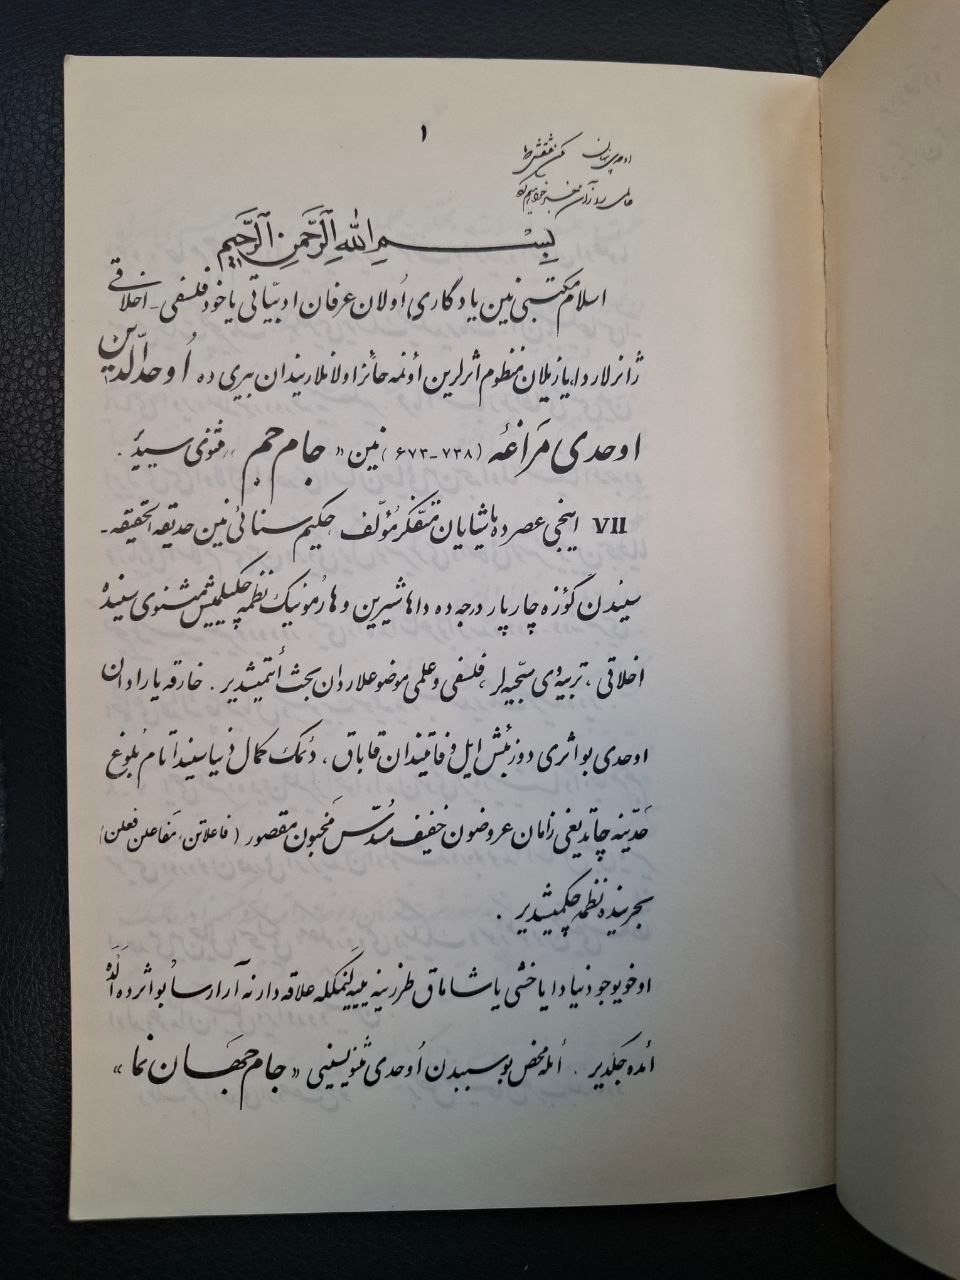 ۱
اوحدی
بِسْمِ اللهِ الرَّحْمنِ الرَّحیمِ
اسلام مکتبی‌نین یادگاری اولان عرفان ادبیّاتی یاخود فلسفی - اخلاقی
ژانرلاردا، یازیلان منظوم اثرلرین اؤنمه حائز اولانلاریندان بیری ده اُوحدالدّین
اوحدی مَراغه‌ (۷۳۸-۶۷۳) نین « جام جم » مثنوی سیدیُر .
VII اینجی عصرده یاشایان متفکّر مُؤلّف حکیم سنائی نین حدیقة الحقیقه-
سیندن گؤزه چارپار درجه ده داها شیرین و هارمونیک نظمه چکیلمیش مثنوی سینده
اخلاقی ، تربیه‌وی سجیّه لر ، فلسفی و علمی موضوعلاردان بحث ائتمیشدیر . خارقه یارادان
اوحدی بو اثری دؤرد بئش ایل وفاتیندان قاباق ، دئمک کمال دنیاسیندا تام بُلوغ
حَدّینه چاتدیغی زامان عروضون خفیف مسدّس مَخبون مقصور ( فاعلاتن، مَفاعلن فعلن)
بحرینده نظمه چکمیشدیر .
اوخویوجو دنیادا یاخشی یاشاماق طرزینه ییه‌لنمکله علاقه‌دار نه آرارسا بو اثرده اَلده
ائده جکدیر . ائله محض بو سببدن اُوحدی مثنویسینی « جام جهان نما »